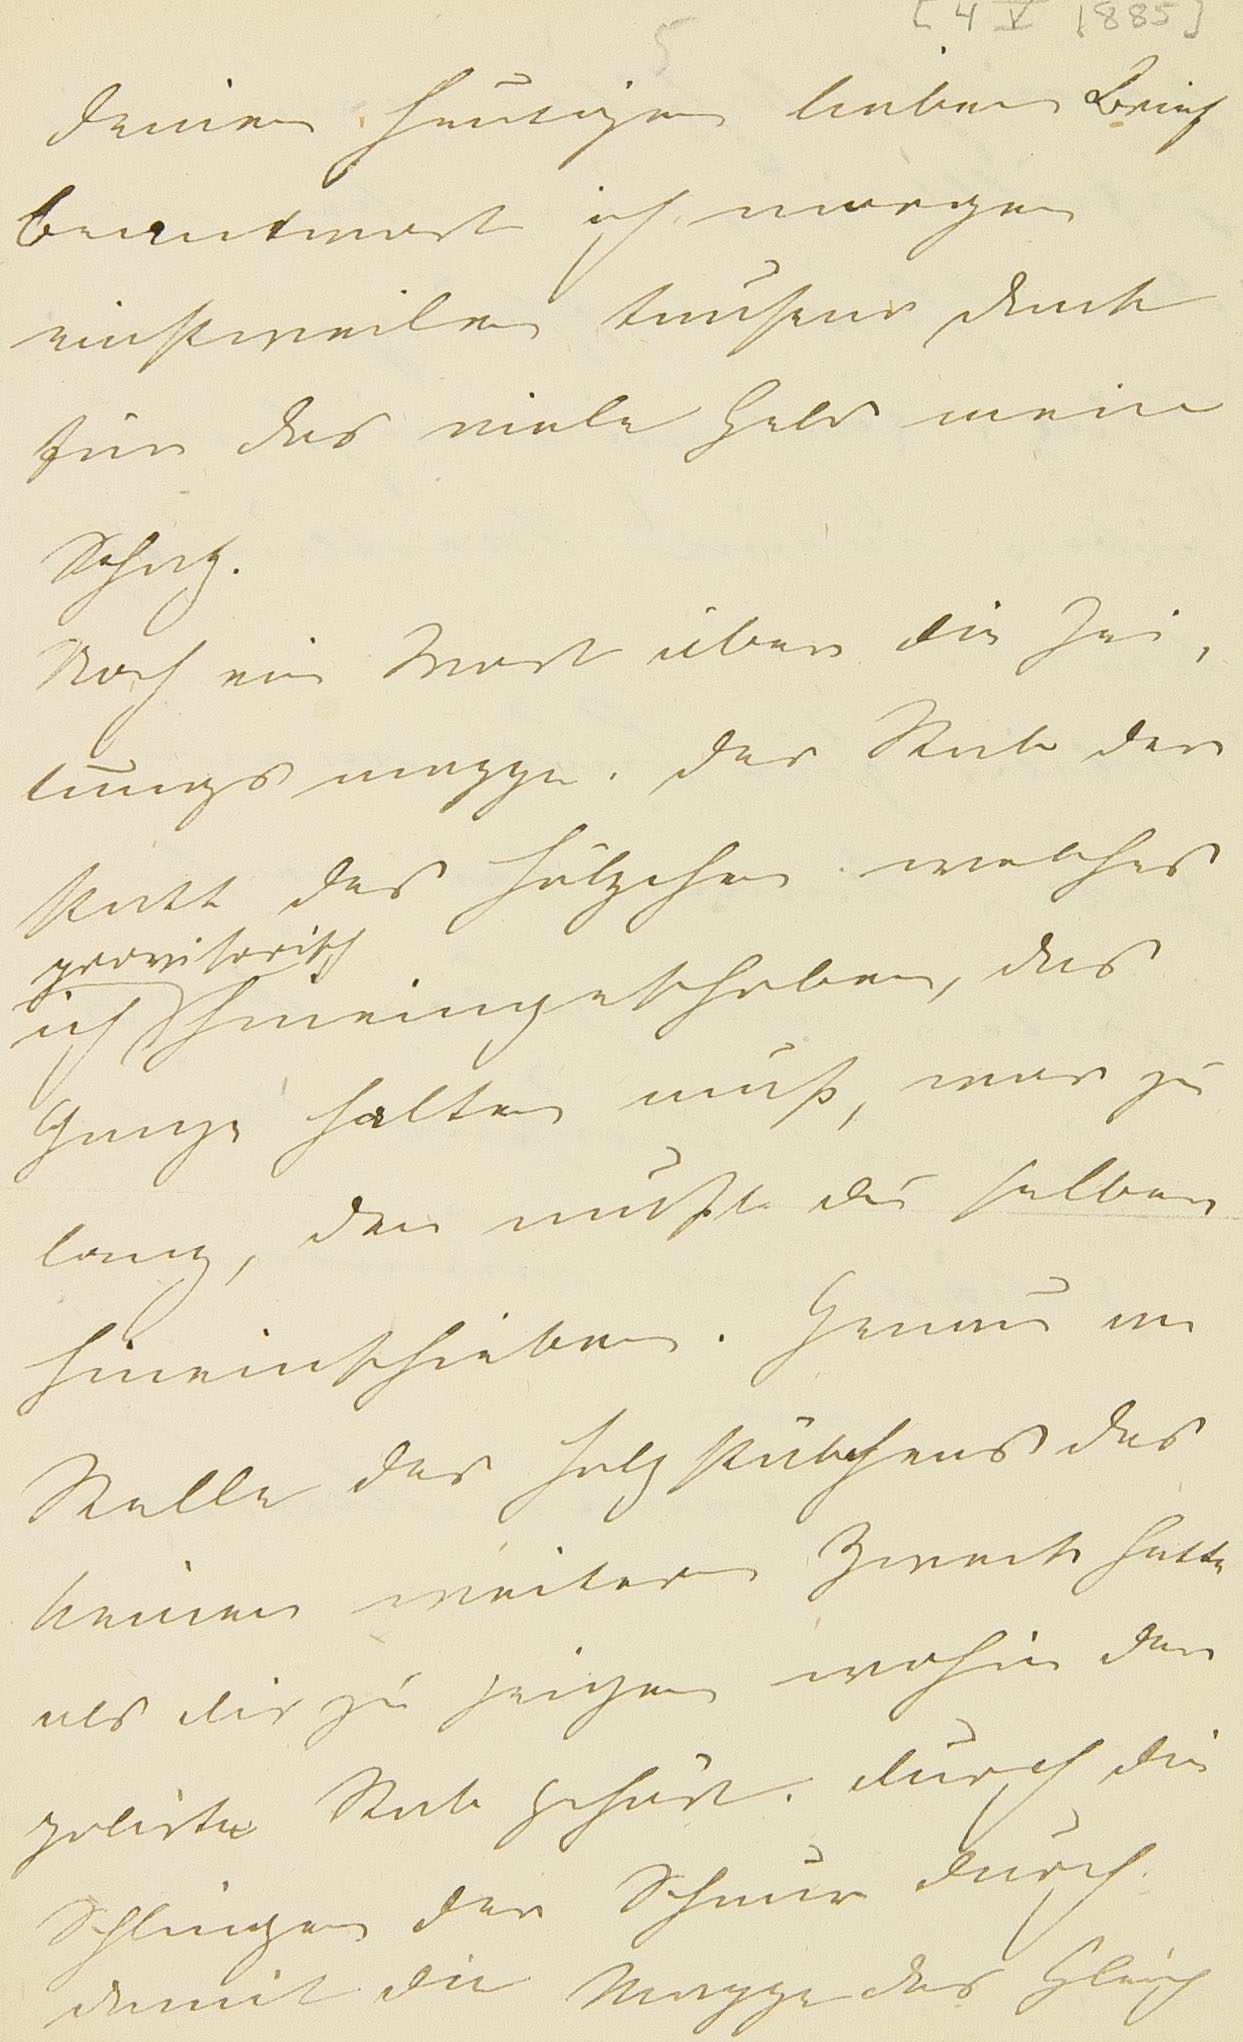 [4 V 1885]
5
Deinen heutigen lieben Brief
beantwort ich morgen
einstweilen tausend Dank
für das viele Geld mein
Schatz.
Noch ein Wort über die Zei,
tungsmappe. Der Stab der
statt des Hölzchen welches
provisorisch
ich hineingeschoben, das
Ganze halten muß, war zu
lang, den mußt du selber
hineinschieben. Genau an
Stelle des Holzstäbchens das
keinen weitern Zweck hatte
als dir zu zeigen wohin der
polirte Stab gehört. Durch die
Schlingen der Schnur durch
damit die Mappe das Gleich